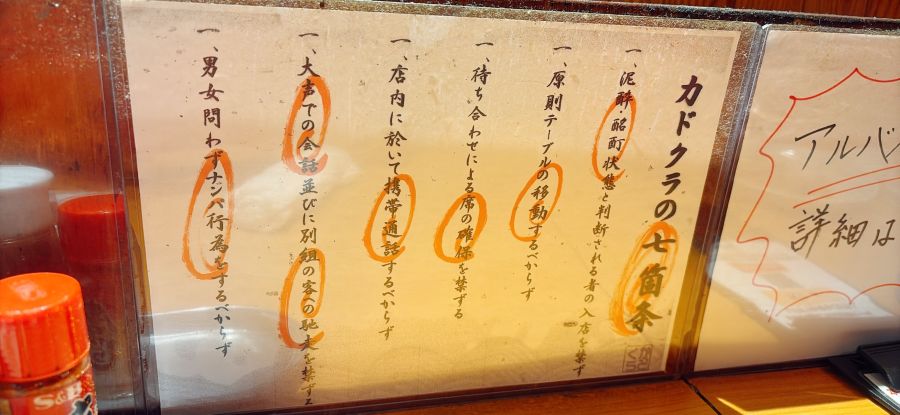 カドクラの七箇条
一、泥酔・酩酊状態と判断される者の入店を禁ず
一、原則テーブルの移動するべからず
一、待ち合わせによる席の確保を禁ずる
一、店内に於いて携帯通話するべからず
一、大声での会話並びに別組の客への馳走を禁ずる
一、男女問わずナンパ行為をするべからず
アルバ
詳細は
S&B